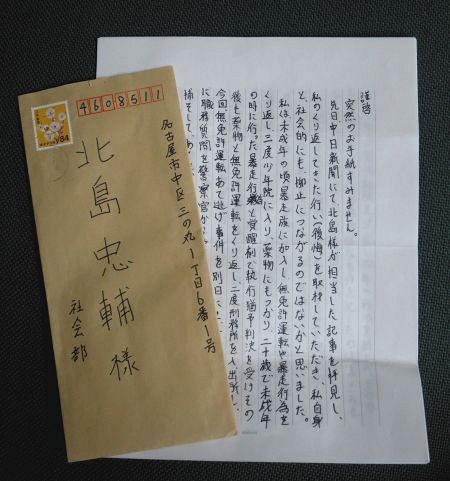 4608511
84
名古屋市中区三の丸1丁目6番1号
北島忠輔様
社会部
謹啓
突然のお手紙すみません。
先日中日新聞にて北島様が担当した記事を拝見し、
私のくり返してきた行い(後悔)を取材していただき、私自身
と、社会的にも、抑止につながるのではないかと思いました。
私は未成年の頃暴走族に加入し無免許運転や暴走行為を
くり返し、二度少年院に入り、薬物にもつかり、二十歳で未成年
の時に行った暴走行為と覚醒剤で執行猶予判決を受けその
後も薬物と無免許運転をくり返し二度刑務所を入出所し、
今回、無免許運転あて逃げ事件を別日に
に職務質問を警察官から
捕そして、あ